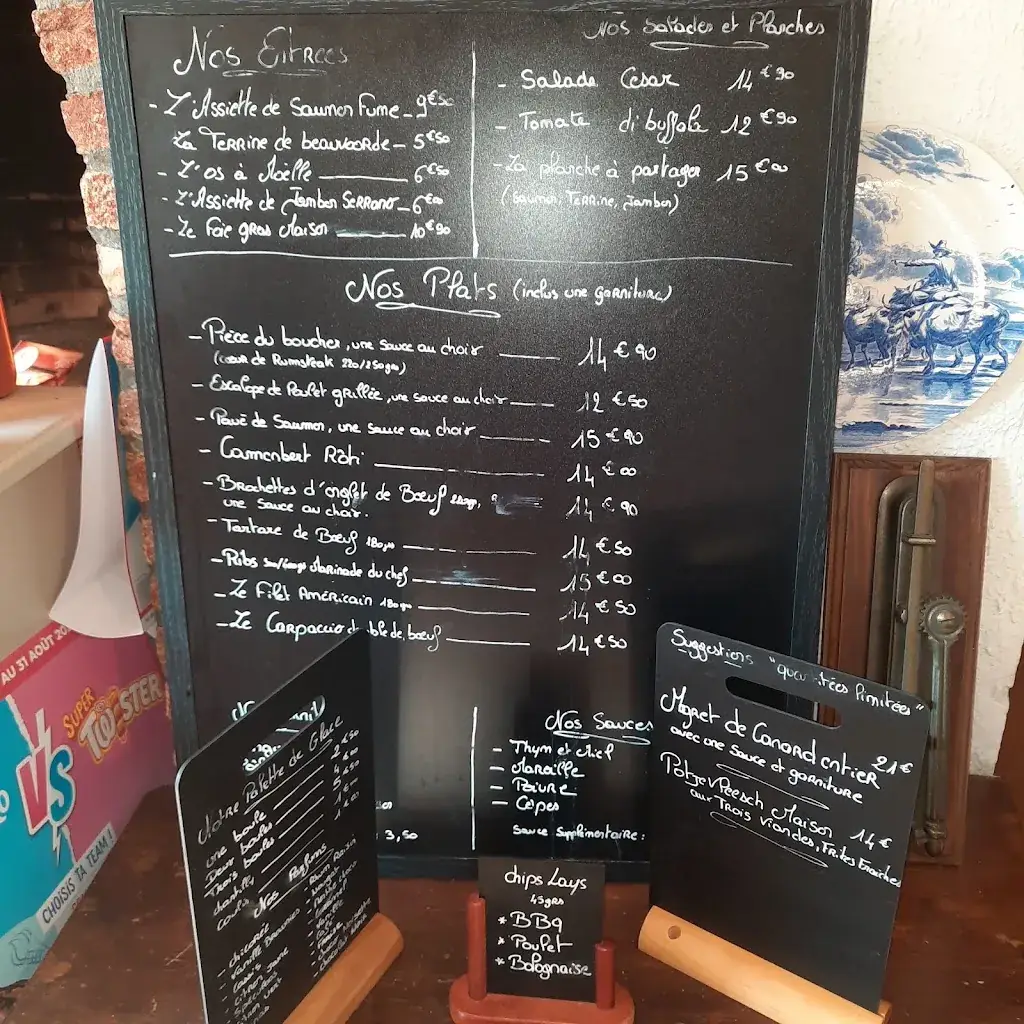 Nos Entrées
- L'Assiette de Saumon Fumé - 9€50
La Terrine de beauvoorde - 5€50
- L'os à Moëlle 6€50
- L'Assiette de Jambon Serrano - 6€00
- Le Foie gras Maison 10€90
Nos Salades et Planches
- Salade César 14€90
- Tomate di buffala 12€90
- La planche à partager 15€00
(Saumon, Terrine, Jambon)
Nos Plats (inclus une garniture)
- Pièce du boucher, une sauce au choix 14€90
(cœur de Rumsteak 220/250grs)
- Escalope de Poulet grillée, une sauce au choix 12€50
- Pavé de Saumon, une sauce au choix 15€90
- Camembert Rôti 14€00
- Brochettes d'onglet de Bœuf 14€90
une sauce au choix.
- Tartare de Bœuf 180grs 14€50
- Ribs Marinade du chef 15€00
- Le Filet Américain 180grs 14€50
- Le Carpaccio de bœuf 14€50
Nos Sauces
- Thym et Miel
- Maroille
- Poivre
- Cèpes
Sauce supplémentaire:
3,50
Notre Palette de Glace
une boule
Deux boules
Trois boules
chantilly
coulis
Nos Parfums
- chicorée
- Vanille
- Brownies
- Rhum Raisin
- Citron vert
chips Lays
45grs
* BBQ
* Poulet
* Bolognaise
Suggestions "quantitées limitées"
Magret de Canard entier 21€
avec une sauce et garniture
Potjevleesch Maison 14€
aux Trois Viandes, Frites Fraiches
AU 31 AOÛT
SUPER
TOASTER
VS
CHOISIS TA TEAM !